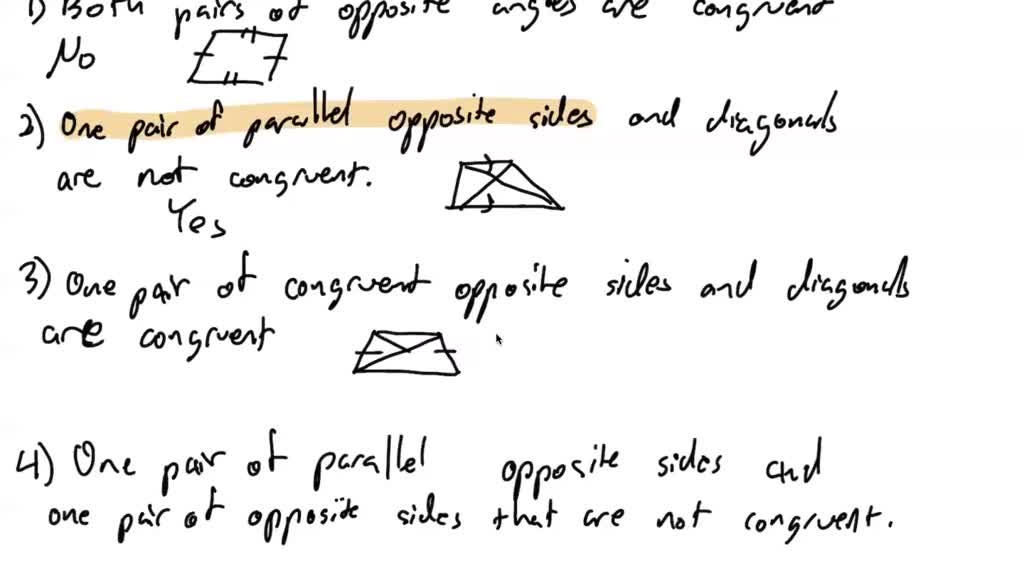 1) Both pairs of opposite angles are congruent
No
2) One pair of parallel opposite sides and diagonals
are not congruent.
Yes
3) One pair of congruent opposite sides and diagonals
are congruent
4) One pair of parallel opposite sides and
one pair of opposite sides that are not congruent.